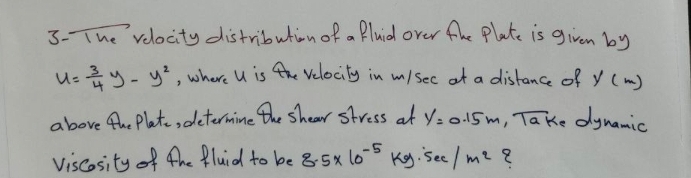 3- The velocity distribution of a fluid over the Plate is given by
u= 3/4 y - y², where u is the velocity in m/sec at a distance of y (m)
above the Plate, determine the shear stress at Y= 0.15m, Take dynamic
Viscosity of the fluid to be 8.5x10⁻⁵ Kg.sec/m² ?